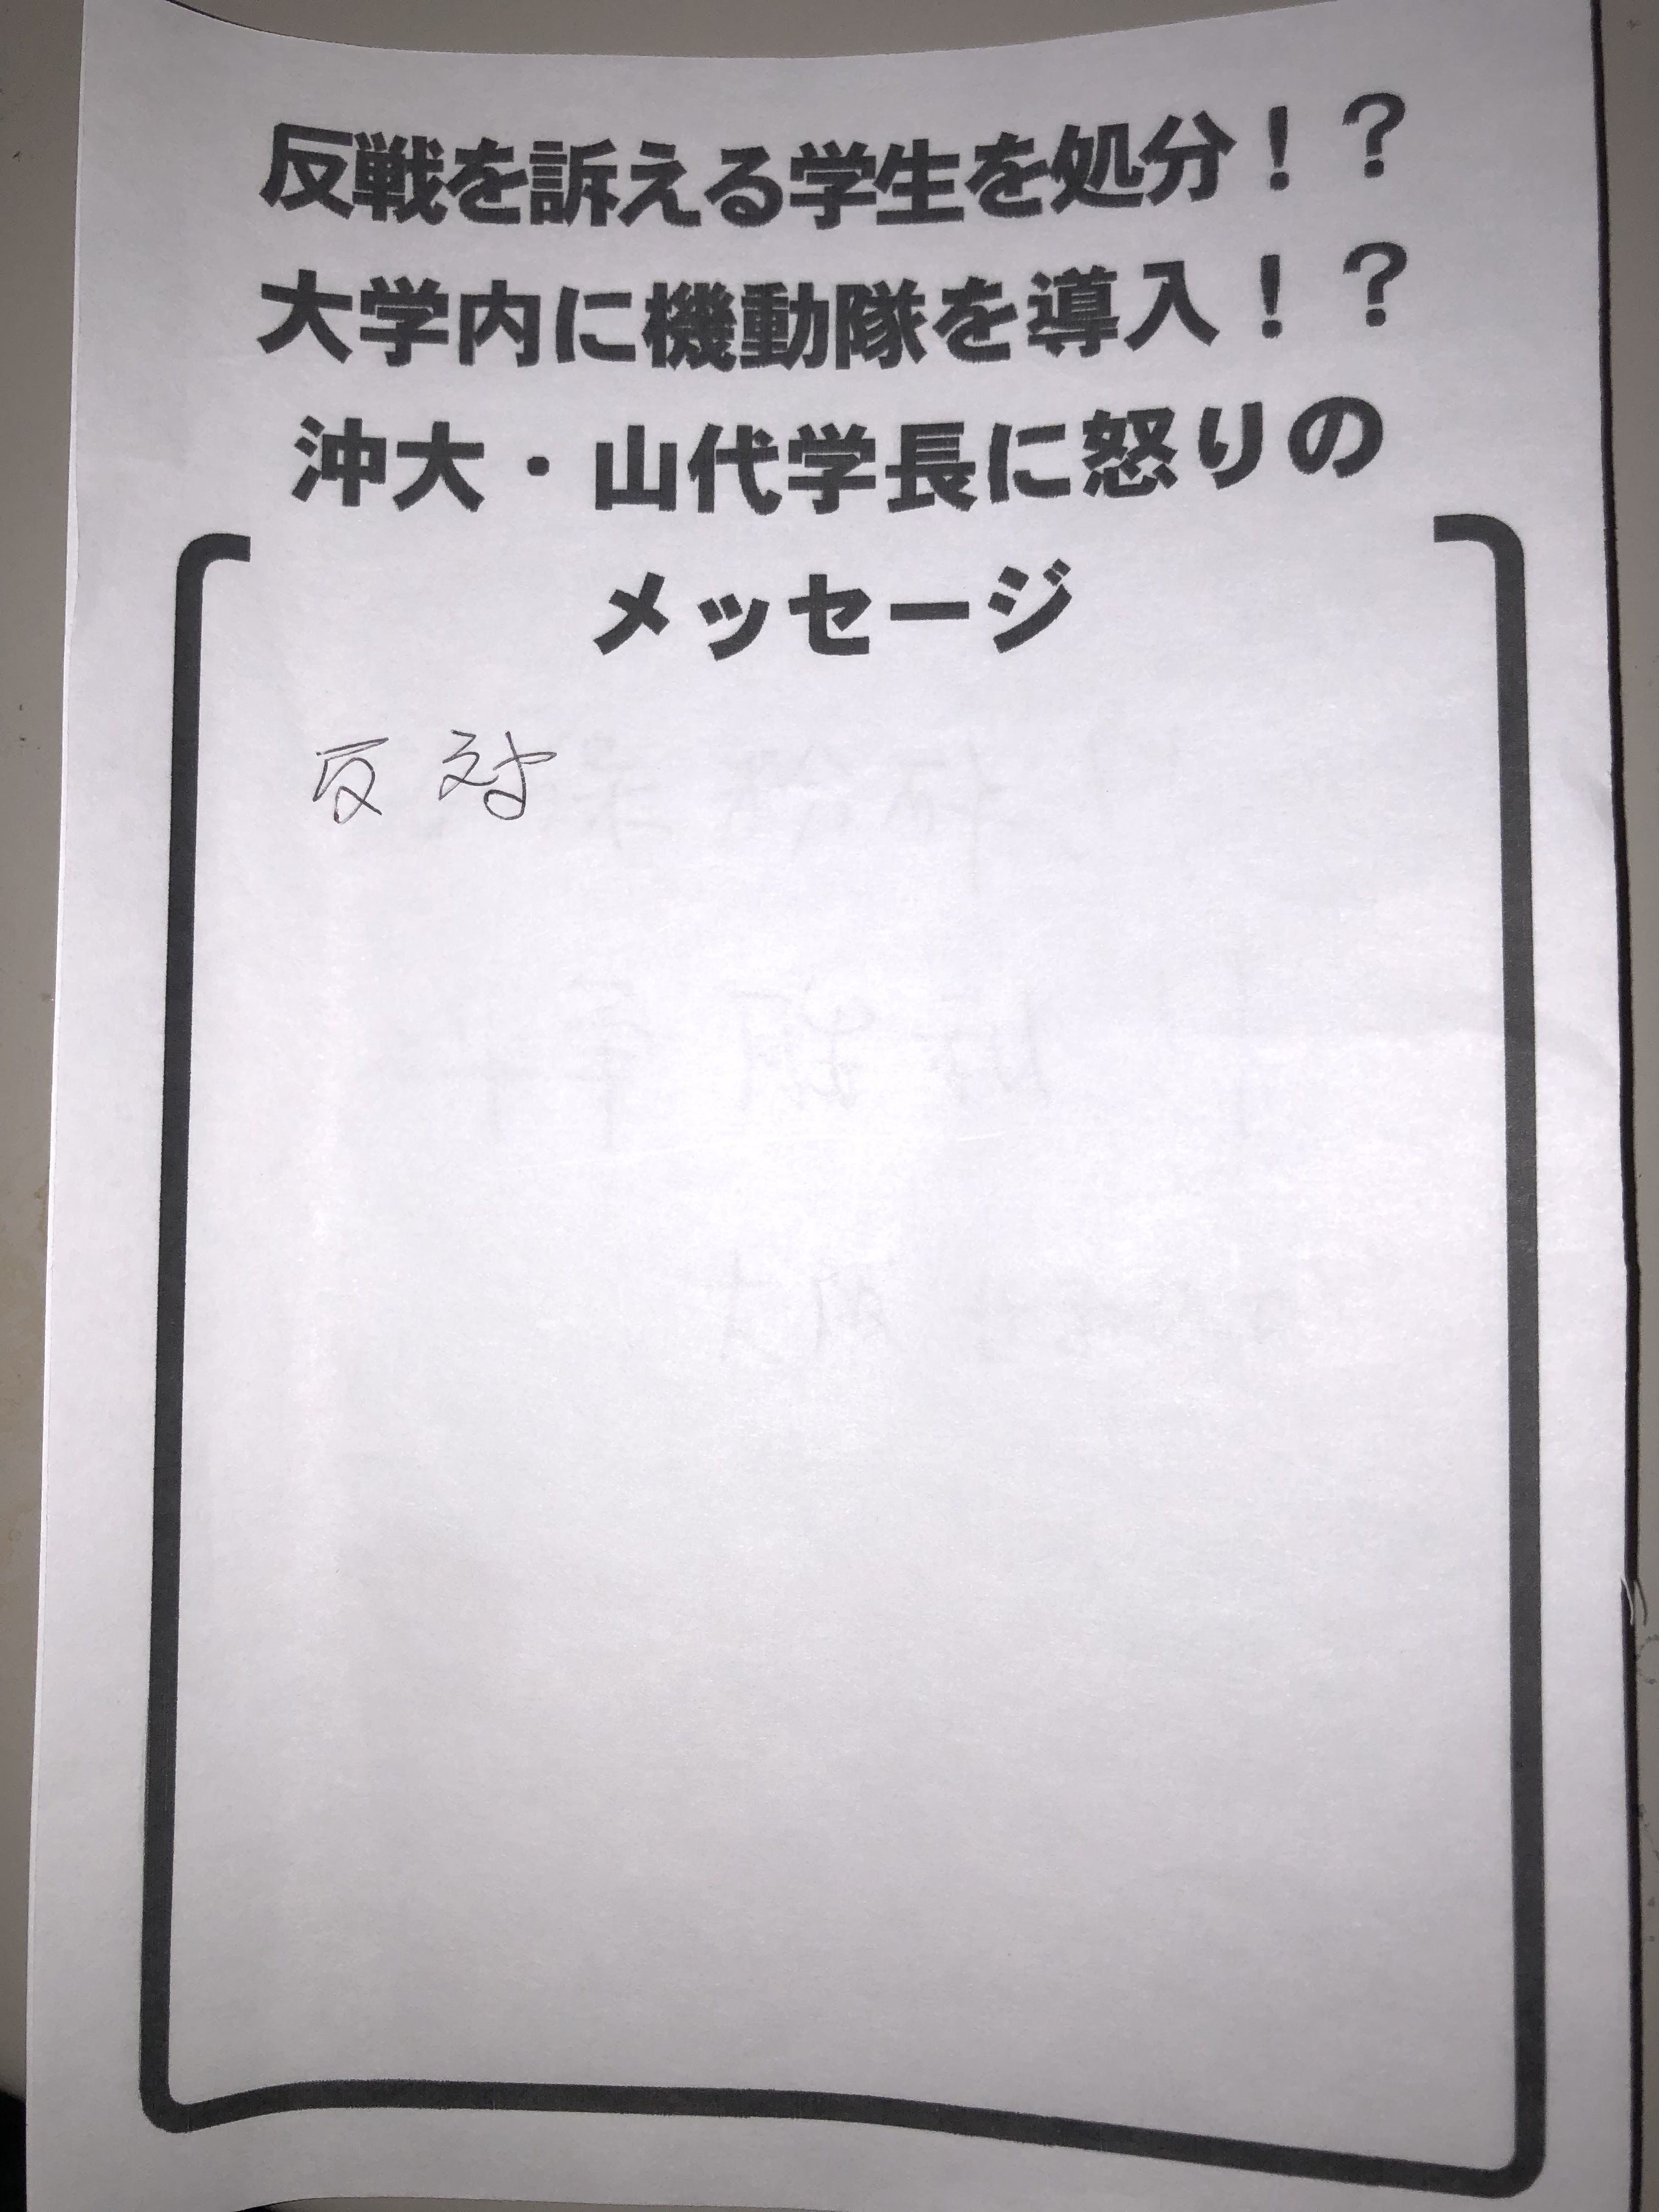 反戦を訴える学生を処分！？
大学内に機動隊を導入！？
沖大・山代学長に怒りの
メッセージ
反対